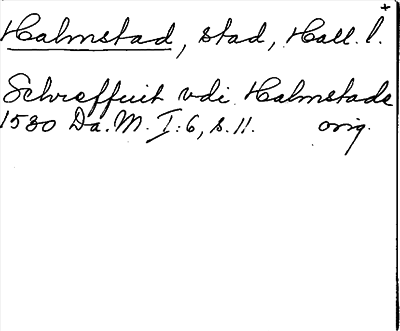 Halmstad, stad, Hall. l.
Schreffuit vdi Halmstade
1530 Da. M. I:6, s. 11. orig.